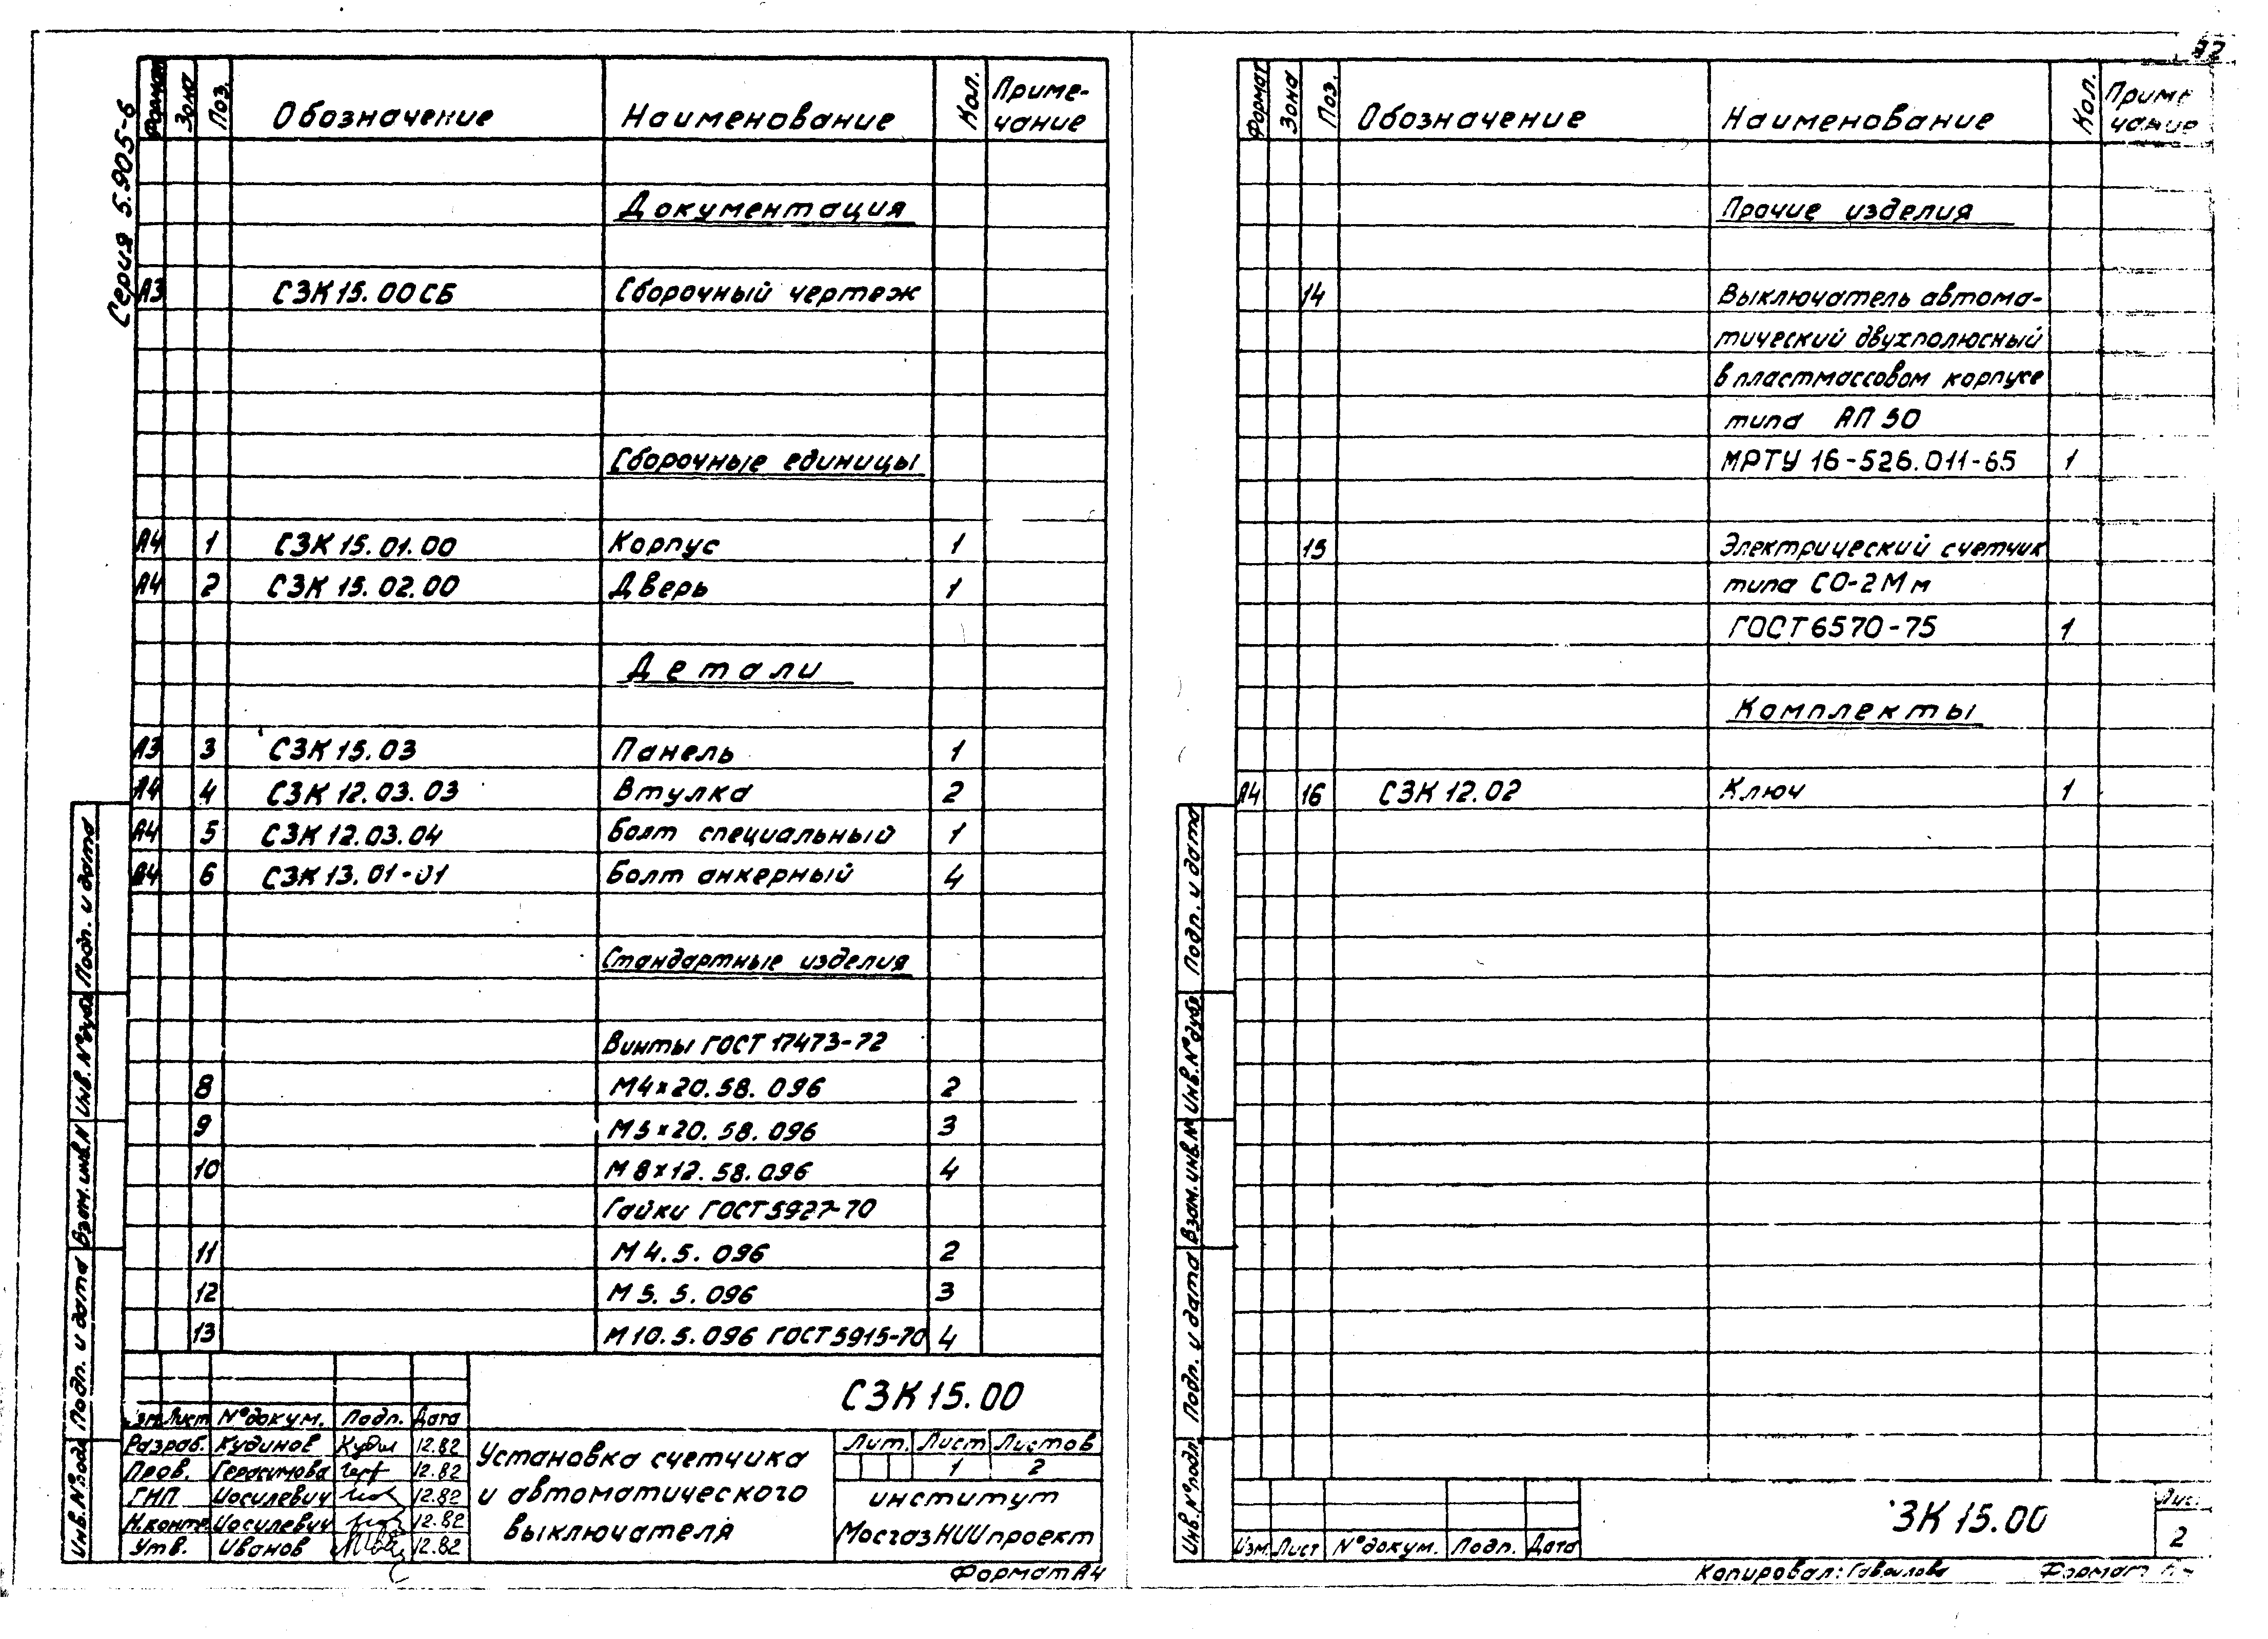 32
Серия 5.905-6
Формат Зона Поз. Обозначение Наименование Кол. Приме-
чание
Документация
А3 СЗК 15.00 СБ Сборочный чертеж
Сборочные единицы
А4 1 СЗК 15.01.00 Корпус 1
А4 2 СЗК 15.02.00 Дверь 1
Детали
А3 3 СЗК 15.03 Панель 1
А4 4 СЗК 12.03.03 Втулка 2
А4 5 СЗК 12.03.04 Болт специальный 1
А4 6 СЗК 13.01-01 Болт анкерный 4
Стандартные изделия
Винты ГОСТ 17473-72
8 М4×20.58.096 2
9 М5×20.58.096 3
10 М8×12.58.096 4
Гайки ГОСТ 5927-70
11 М4.5.096 2
12 М5.5.096 3
13 М10.5.096 ГОСТ 5915-70 4
Инв.№подл. Подп. и дата Взам.инв.№ Инв.№дубл. Подп. и дата
СЗК 15.00
Изм. Лист №докум. Подп. Дата
Разраб. Кудинов 12.82
Пров. Герасимова 12.82
ГИП Иосилевич 12.82
Н.контр. Иосилевич 12.82
Утв. Иванов 12.82
Установка счетчика
и автоматического
выключателя
Лит. Лист Листов
1 2
институт
МосгазНИИпроект
Формат А4
Формат Зона Поз. Обозначение Наименование Кол. Приме
чание
Прочие изделия
14 Выключатель автома-
тический двухполюсный
в пластмассовом корпусе
типа АП 50
МРТУ 16-526.011-65 1
15 Электрический счетчик
типа СО-2Мм
ГОСТ 6570-75 1
Комплекты
А4 16 СЗК 12.02 Ключ 1
Инв.№подл. Подп. и дата Взам.инв.№ Инв.№дубл. Подп. и дата
Изм. Лист №докум. Подп. Дата
ЗК 15.00
Лис
2
Копировал: Гаврилова
Формат